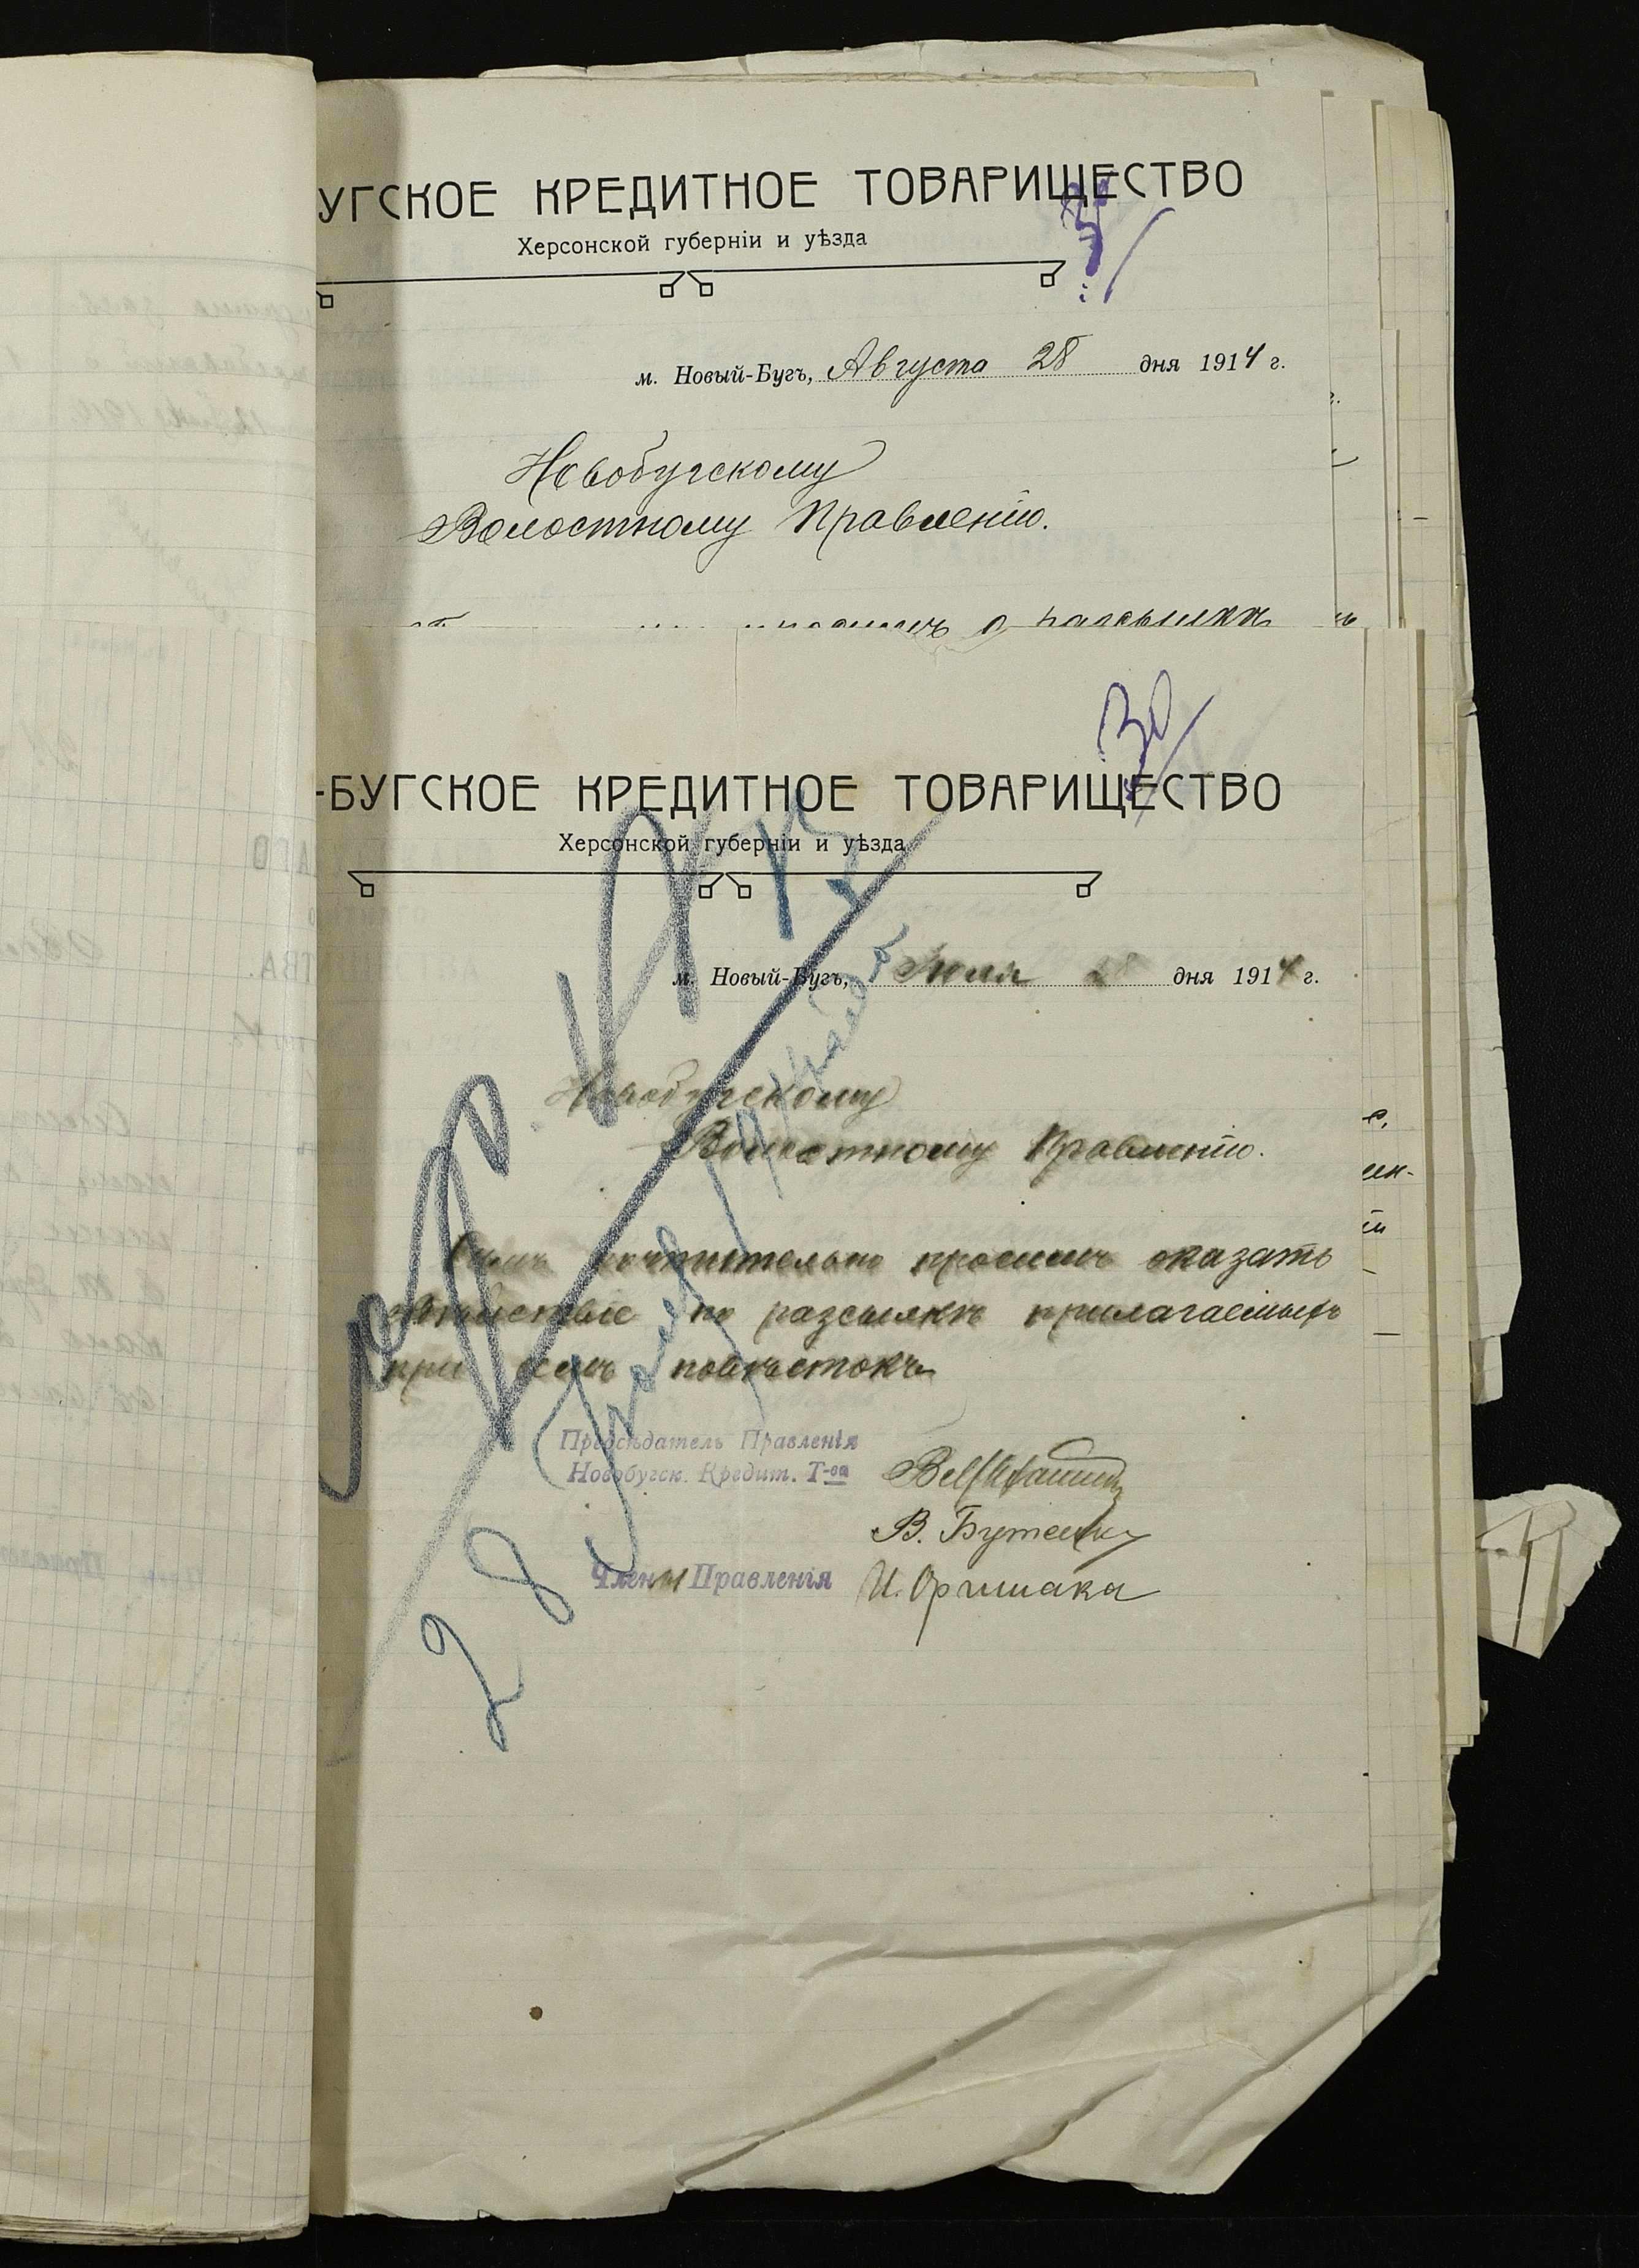 УГСКОЕ КРЕДИТНОЕ ТОВАРИЩЕСТВО
Херсонской губерніи и уѣзда
м. Новый-Бугъ, Августа 28 дня 1914 г.
Новобугскому
Волостному Правленію.
просимъ о разсылкѣ
30
-БУГСКОЕ КРЕДИТНОЕ ТОВАРИЩЕСТВО
Херсонской губерніи и уѣзда
м. Новый-Бугъ, Іюля 28 дня 1914 г.
Новобугскому
Волостному Правленію.
Симъ почтительно просимъ оказать
содѣйствіе по разсылкѣ прилагаемыхъ
при семъ повѣстокъ
Предсѣдатель Правленія
Новобугск. Кредит. Т-ва
В. Бутенко
Члены Правленія И. Оришака
28